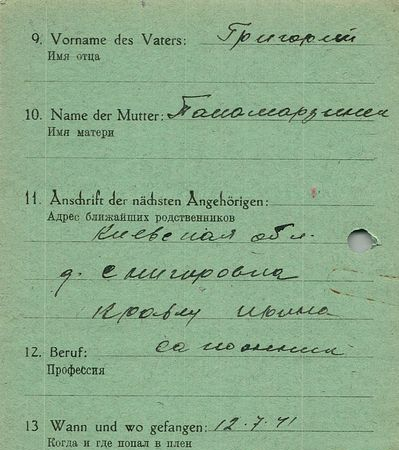 9. Vorname des Vaters: Григорий
Имя отца
10. Name der Mutter:
Имя матери
11. Anschrift der nächsten Angehörigen:
Адрес ближайших родственников
Киевская обл.
д. Снигировка
Кравец Ирина
12. Beruf: сапожник
Профессия
13 Wann und wo gefangen: 12.7.41
Когда и где попал в плен